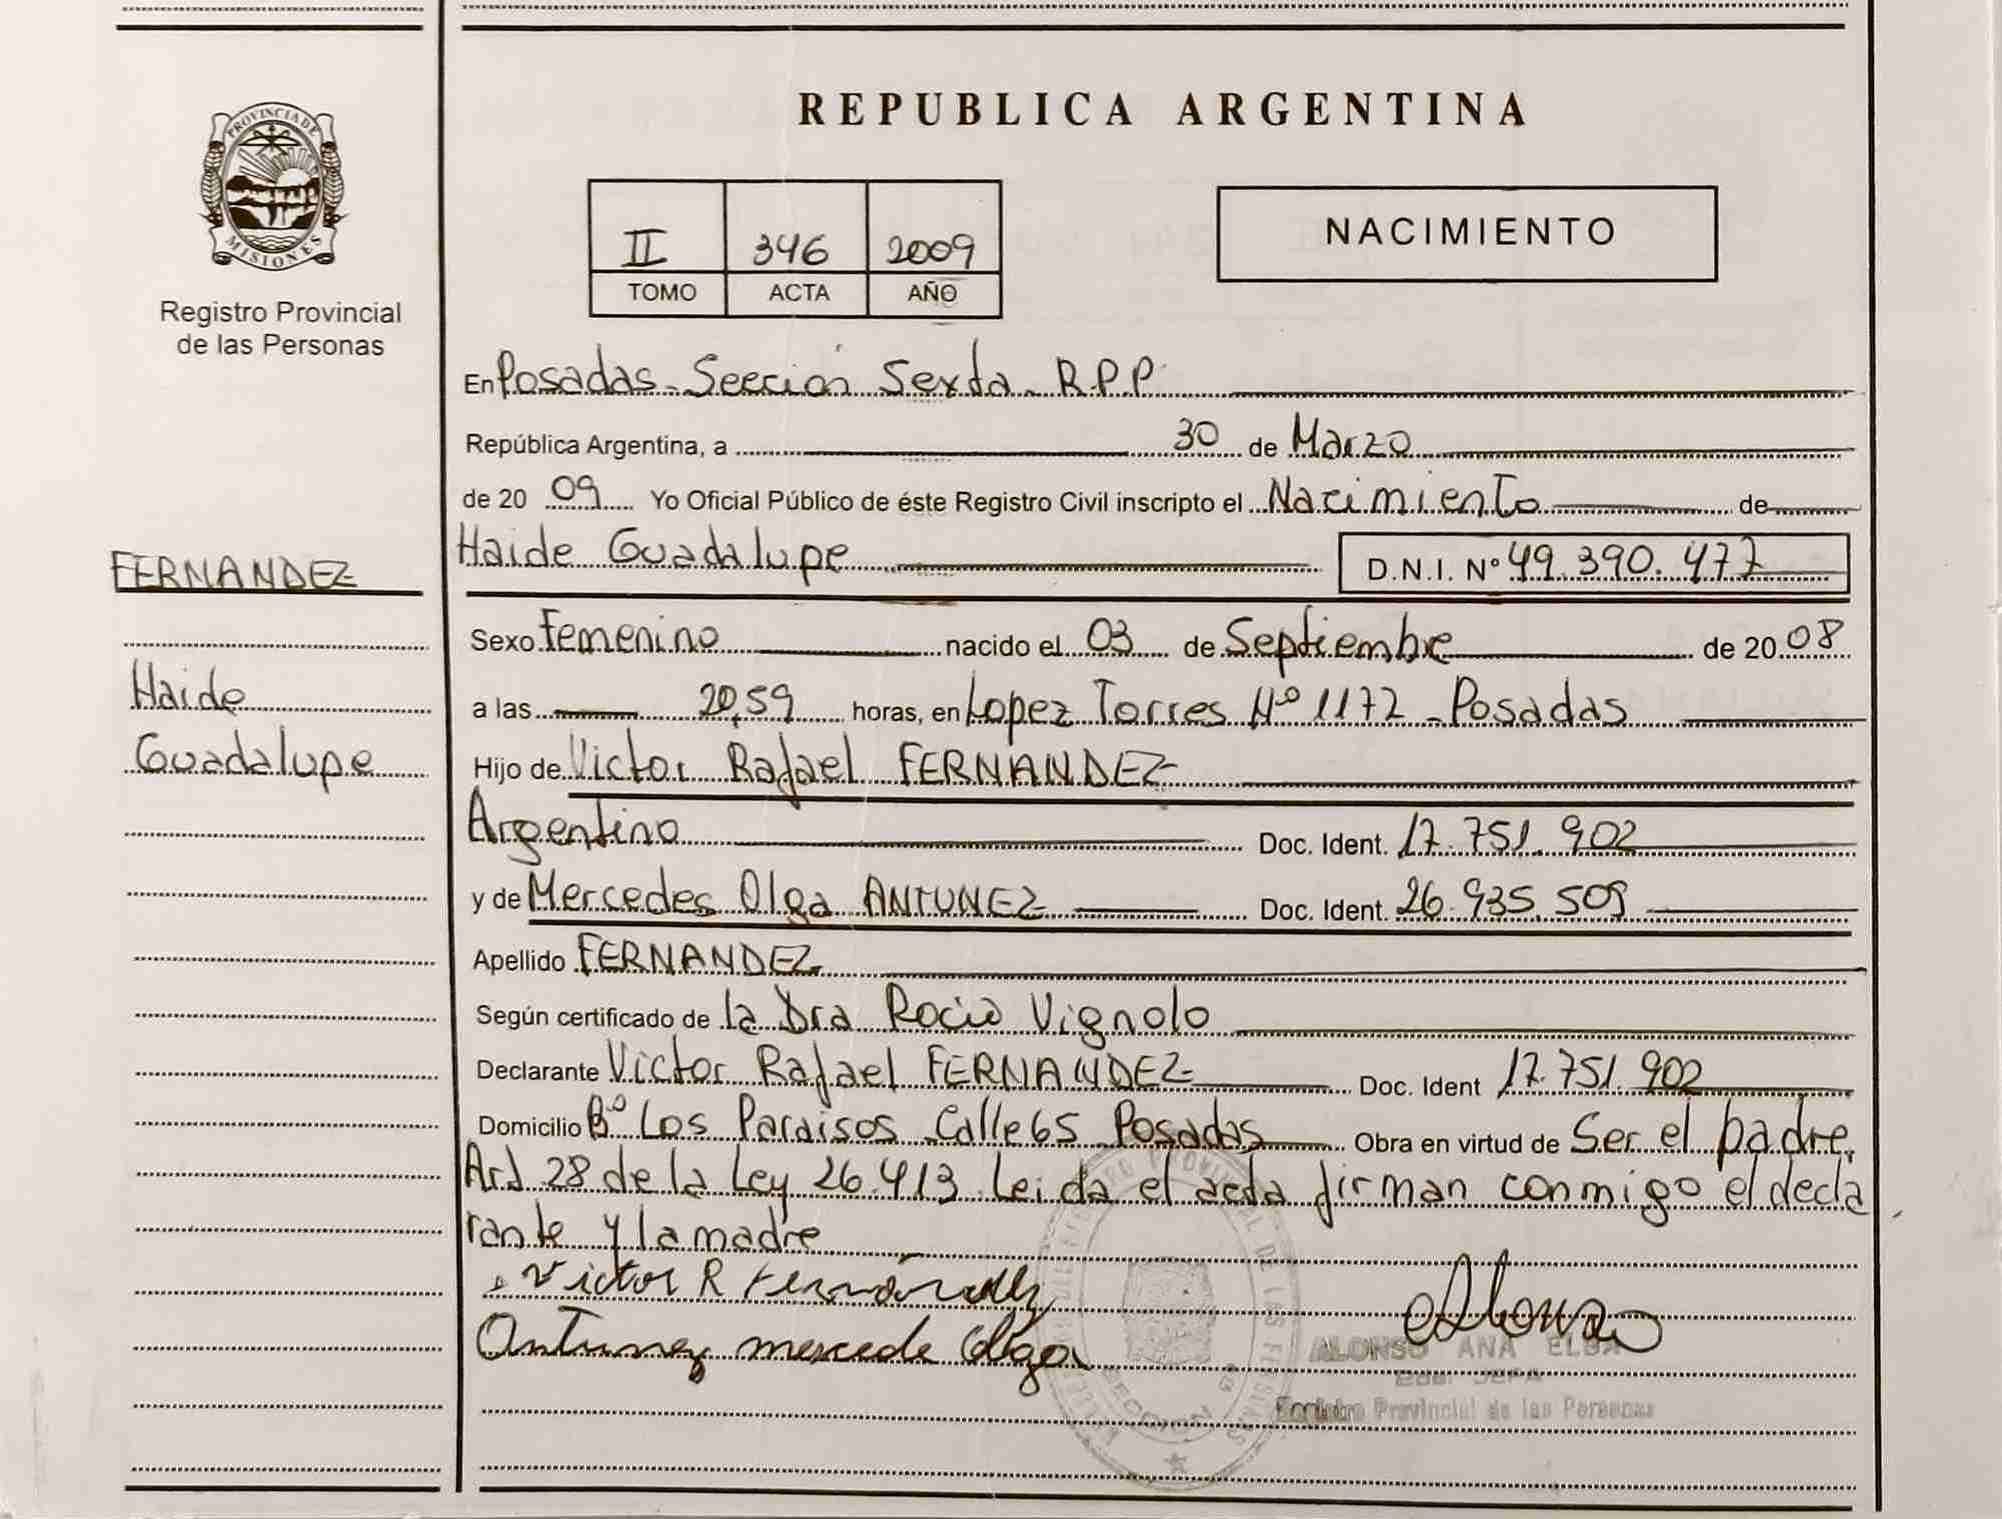 REPUBLICA ARGENTINA
PROVINCIA DE
MISIONES
Registro Provincial
de las Personas
II 346 2009
TOMO ACTA AÑO
NACIMIENTO
En Posadas - Sección Sexta - R.P.P.
República Argentina, a 30 de Marzo
de 20 09 Yo Oficial Público de éste Registro Civil inscripto el Nacimiento de
FERNANDEZ
Haide Guadalupe D.N.I. Nº 49.390.477
Sexo Femenino nacido el 03 de Septiembre de 20 08
Haide
a las 20,59 horas, en Lopez Torres Nº 1172 - Posadas
Guadalupe
Hijo de Victor Rafael FERNANDEZ
Argentino Doc. Ident. 17.751.902
y de Mercedes Olga ANTUNEZ Doc. Ident. 26.935.509
Apellido FERNANDEZ
Según certificado de la Dra Rocio Vignolo
Declarante Victor Rafael FERNANDEZ Doc. Ident 17.751.902
Domicilio Bº Los Paraisos Calle 65 Posadas Obra en virtud de Ser el padre,
Art 28 de la Ley 26.413. Leida el acta firman conmigo el decla
rante y la madre
Victor R Fernández
Antunez mercede Olga
Alonso
ALONSO ANA ELBA
Registro Provincial de las Personas
SECCION